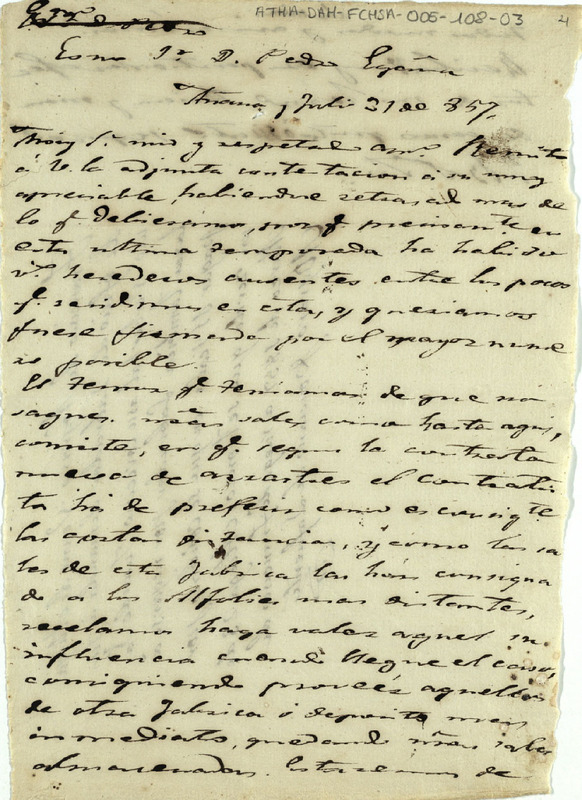 ATHA-DAH-FCHSA-006-108-03
Esmo Sr. D. Pedro Egaña
Añana y Juli 31 de 857.
Muy Sr. mio y respetad amo. Remito
á V. la adjunta contestacion á su muy
apreciable, habiendose retrasad mas de
lo q. debieramos, por q. precisamte en
esta ultima temporada ha habido
vs. herederos ausentes entre los pocos
q. rendimos en esta, y queriamos
fuese firmada por el mayor nume
ro posible.
El temor q. teniamos de que no
saquen ntras sales como hasta aqui,
consiste, en q. segun la contrata
nueva de arrastres el contratis
ta há de preferir como es consigte
las cortas distancias, y como las sa
les de esta fabrica las han consigna
do á los Alfolies mas distantes,
recelamos haga valer aquel su
influencia cuando llegue el caso,
consiguiendo proveér aquellos
de otra fabrica ó deposito mas
inmediato, quedando ntras sales
almacenadas. Estaremos de